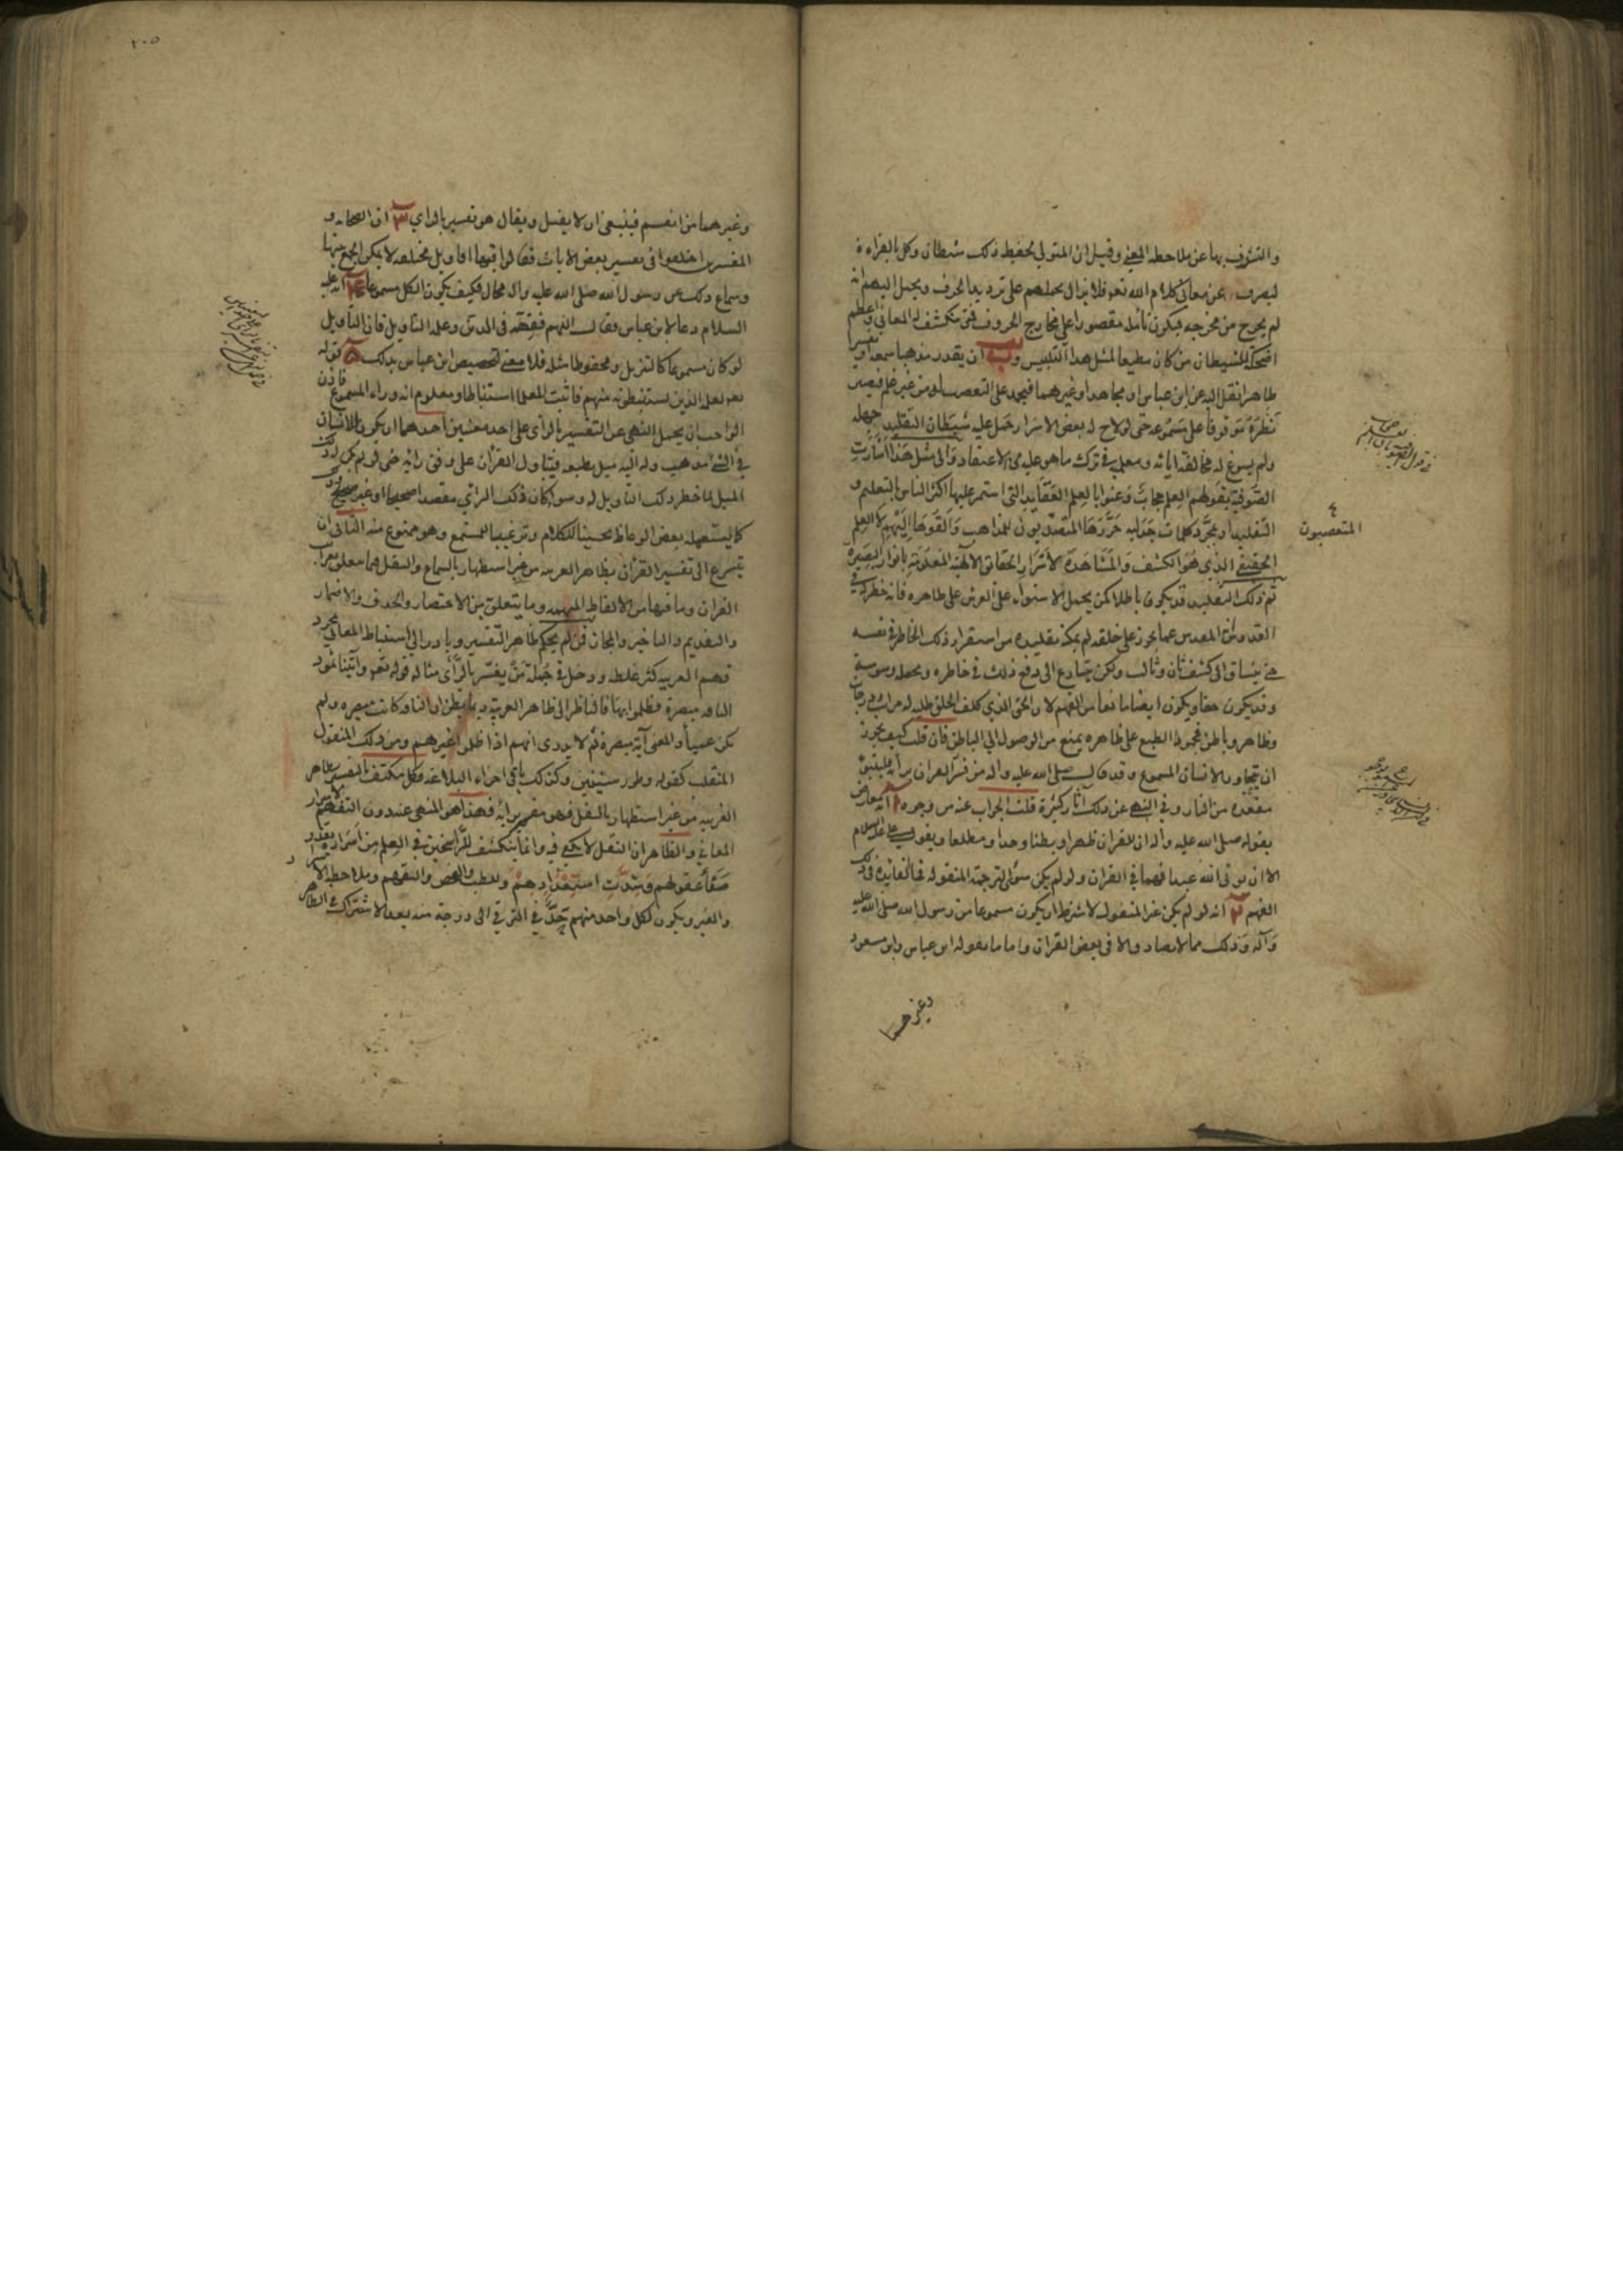 والتشرف بها عن ملاحظه المعنى وقيل ان المتولى لحفظ ذلك شيطان وكل بالقراءة
ليصرف عن معانى كلام الله تعو فلا يزال يحملهم على ترديد الحرف ويخيل اليهم انه
لم يخرج من مخرجه فيكون تامله مقصورا على مخارج الحروف فمتى تنكشف له المعانى واعظم
اضحكة للشيطان من كان مطيعا لمثل هذا التلبيس وب ان يقدر مذهبا سمعه او تفسيرا
ظاهرا نقل اليه عن ابن عباس او مجاهد او غيرهما فيجمد على التعصب له من غير علم فيصير
نظره موقوفا على مسموعه حتى لو لاح له بعض الاسرار حمل عليه شيطان التقليد جهله
ولم يسوغ له مخالفة ابائه ومعلميه فى ترك ما هو عليه من الاعتقاد والى مثل هذا اشارت
الصوفية بقولهم العلم حجاب وعنوا بالعلم العقايد التى استمر عليها اكثر الناس بالتعليم و
التقليد او بمجرد كلمات جدليه حررها المتعصبون للمذاهب والقوها اليهم لا العلم
المتعصبون
الحقيقى الذى هو الكشف والمشاهدة لاسرار الحقائق الالهية المعلومة بانوار البصيرة
ثم ذلك التقليد قد يكون باطلا كمن يحمل الاستواء على العرش على ظاهره فان خطر له فى
القدوس انه المقدس عما يجوز على خلقه لم يمكنه تقليده من استقرار ذلك الخاطر فى نفسه
حتى ينساق الى كشف ثان وثالث ولكن يتسارع الى دفع ذلك فى خاطره ويجعله وسوسة
وقد يكون حقا ويكون ايضا مانعا من الفهم لان الحق الذى كلف الخلق طلبه له مراتب ودرجات
وظاهر وباطن فجمود الطبع على ظاهره يمنع من الوصول الى الباطن فان قلت كيف يجوز
ان يتجاوز الانسان المسموع وقد قال صلى الله عليه واله من فسر القران برايه فليتبوء
مقعده من النار وفى النهى عن ذلك اثار كثيرة قلت الجواب عنه من وجوه ا انه معارض
بقوله صلى الله عليه واله ان للقران ظهرا وبطنا وحدا ومطلعا وبقول على عليه السلام
الا ان يوتى الله عبدا فهما فى القران ولو لم يكن سوى الترجمة المنقوله فما الفائدة فى ذلك
الفهم ٢ انه لو لم يكن غير المنقول لاشترط ان يكون مسموعا من رسول الله صلى الله عليه
وآله وذلك مما لا يصادف الا فى بعض القران واما ما يقوله ابن عباس وابن مسعود
وغيرهما
٢٠٥
وغيرهما من انفسهم فينبغى ان لا يقبل ويقال هو تفسير بالراى ٣ ان الصحابه و
المفسرين اختلفوا فى تفسير بعض الايات فقالوا فيها اقاويل مختلفه لا يمكن الجمع بينها
وسماع ذلك من رسول الله صلى الله عليه واله محال فكيف يكون الكل مسموعا ٤ انه عليه
السلام دعا لابن عباس وقال اللهم فقهه فى الدين وعلمه التاويل فان التاويل
لو كان مسموعا كالتنزيل ومحفوظا مثله فلا معنى لتخصيص ابن عباس بذلك ٥ قوله
تعو لعلمه الذين يستنبطونه منهم فاثبت للعلما استنباطا ومعلوم انه وراء المسموع فاذن
الواجب ان يحمل النهى عن التفسير بالراى على احد معنيين احدهما ان يكون للانسان
فى الشى مذهب وله اليه ميل بطبعه فيتاول القران على وفق رائه حتى لو لم يكن له ذلك
الميل لما خطر ذلك التاويل له وسوا كان ذلك الراى مقصدا صحيحا او غير صحيح وذلك
كما يستعمله بعض الوعاظ تحسينا للكلام وترغيبا للمستمع وهو ممنوع منه الثانى ان
يتسرع الى تفسير القران بظاهر العربيه من غير استظهار بالسماع والنقل فيما يتعلق بغرائب
القران وما فيها من الالفاظ المبهمه وما يتعلق به من الاختصار والحذف والاضمار
والتقديم والتاخير والمجاز فمن لم يحكم ظاهر التفسير وبادر الى استنباط المعانى بمجرد
فهم العربيه كثر غلطه ودخل فى جملة من يفسر بالراى مثاله قوله تعو واتينا ثمود
الناقه مبصرة فظلموا بها فالناظر الى ظاهر العربية ربما يظن ان الناقه كانت مبصره ولم
تكن عميأ والمعنى آية مبصرة ثم لا يدرى انهم اذا ظلموا غيرهم ومن ذلك المنقول
المنقلب كقوله وطور سينين وكذلك باقى اجزاء البلاغه فكل مكتف بالتفسير بظاهر
العربيه من غير استظهار بالنقل فهو مفسر برايه فهذا هو المنهى عنه دون التفهم لاسرار
المعانى والظاهر ان النقل لا يكفى فيه وانما ينكشف للراسخين فى العلم من اسراره بقدر
صفاء عقولهم وشدة استعدادهم وللطلب والفحص والتفهم وملاحظه الاسرار
والعبر ويكون لكل واحد منهم حد فى الترقى الى درجة منه بعد الاشتراك فى الظاهر